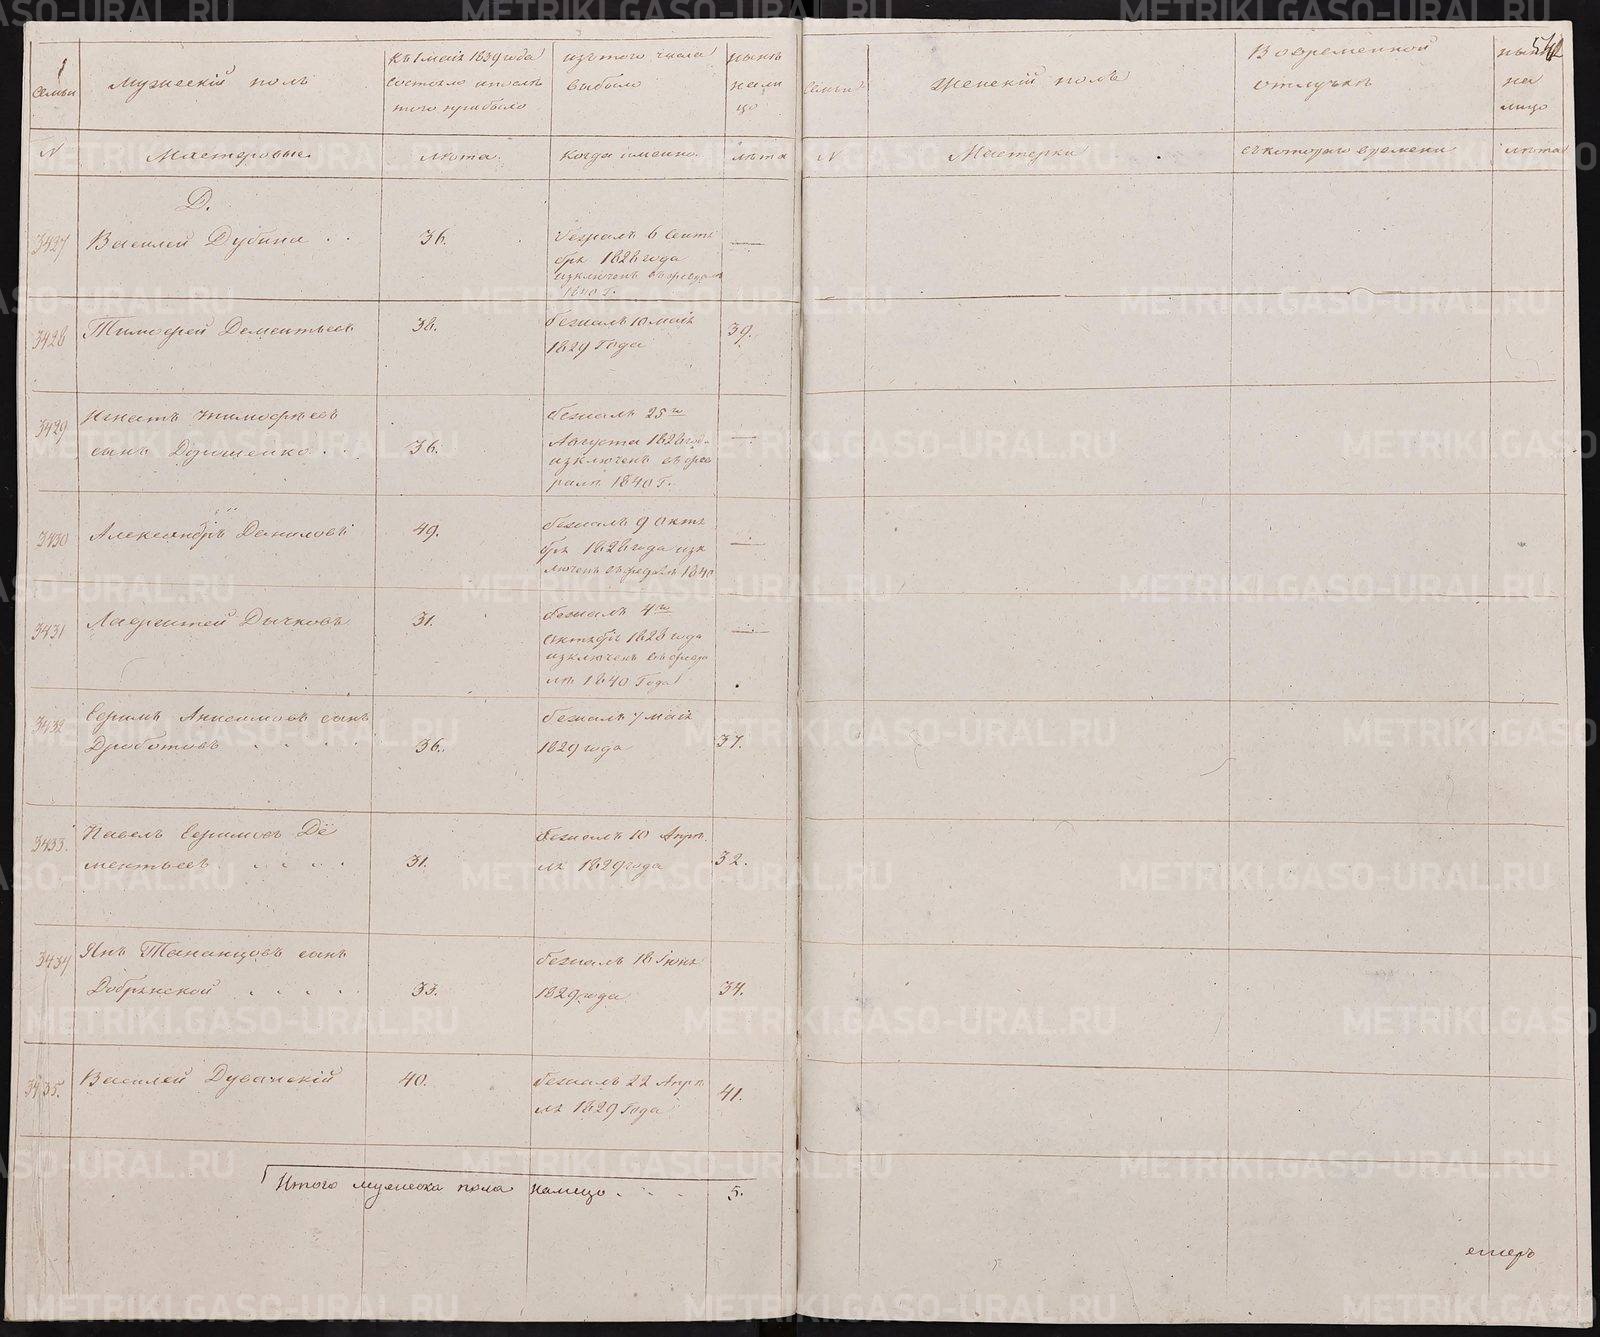 Семьи
Мужескій полъ
Къ 1 маія 1839 года
состояло и послѣ
того прибыло
изъ того числа
выбыло
нынѣ
на ли
цо
N
Мастеровые
лѣта
когда имянно.
лѣта
Д.
3427
Василей Дубина . .
36.
бежалъ 6 Сентя
бря 1828 года
изключенъ въ февралѣ
1840 г.
3428
Тимофей Дементьевъ
38.
бежалъ 10 маія
1829 года
39.
3429
Игнатъ Тимофѣевъ
сынъ . .
36.
бежалъ 25го
Августа 1828 года
изключенъ въ фев
ралѣ 1840 г.
3430
Александръ Даниловъ
49.
бежалъ 9 Октя
бря 1828 года изк
люченъ въ февралѣ 1840
3431
Лаврентей Дычковъ
31.
бежалъ 4го
октября 1828 года
изключенъ въ февра
лѣ 1840 года
3432
Ефимъ Анисимовъ сынъ
Дроботовъ . . . .
36.
бежалъ 7 маія
1829 года
37.
3433.
Павелъ Ефимовъ Де
ментьевъ . . . .
31.
бежалъ 10 Апрѣ
ля 1829 года
32.
3434
Янъ сынъ
Добрянской . . . .
33.
бежалъ 18 Іюня
1829 года
34.
3435.
Василей Дуванскій
40.
бежалъ 22 Апрѣ
ля 1829 года
41.
Итого мужеска пола налицо . . . 5.
542
Семьи
Женскій полъ
Во временной
отлучкѣ
нынѣ
на
лицо
N
Мастерки
съ котораго времени
лѣта
METRIKI.GASO-URAL.RU